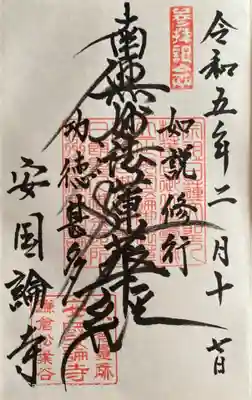 令和五年二月十七日
参拝記念
如説修行
南無妙法蓮華経
功徳甚多
安国論寺
鎌倉松葉谷
安国論寺